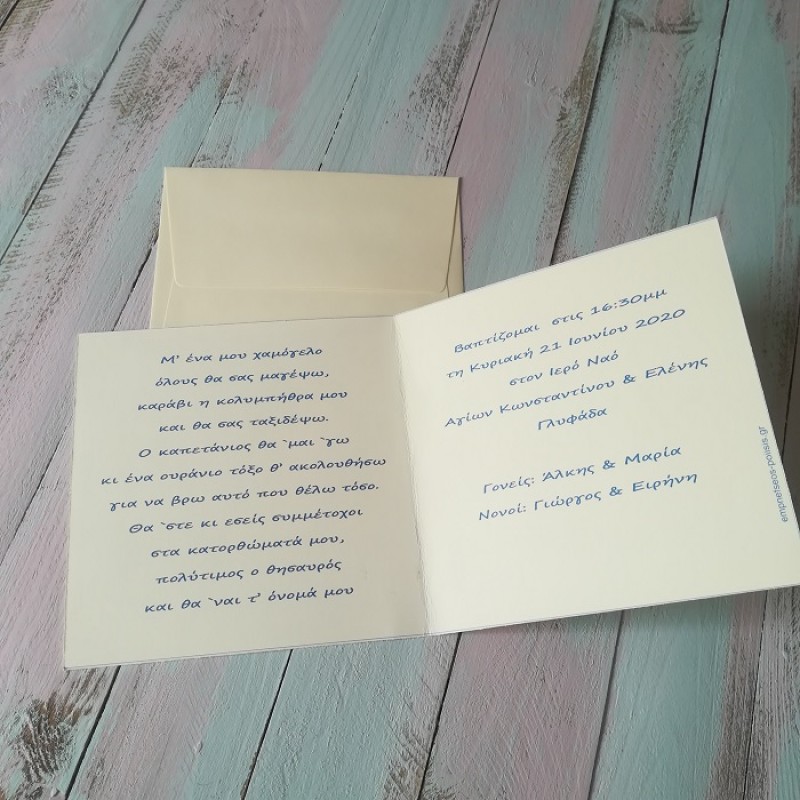 Μ' ένα μου χαμόγελο
όλους θα σας μαγέψω,
καράβι η κολυμπήθρα μου
και θα σας ταξιδέψω.
Ο καπετάνιος θα `μαι `γω
κι ένα ουράνιο τόξο θ' ακολουθήσω
για να βρω αυτό που θέλω τόσο.
Θα `στε κι εσείς συμμέτοχοι
στα κατορθώματά μου,
πολύτιμος ο θησαυρός
και θα `ναι τ' όνομά μου
Βαπτίζομαι στις 16:30μμ
τη Κυριακή 21 Ιουνίου 2020
στον Ιερό Ναό
Αγίων Κωνσταντίνου & Ελένης
Γλυφάδα
Γονείς: Άλκης & Μαρία
Νονοί: Γιώργος & Ειρήνη
empnefseos-poiisis.gr